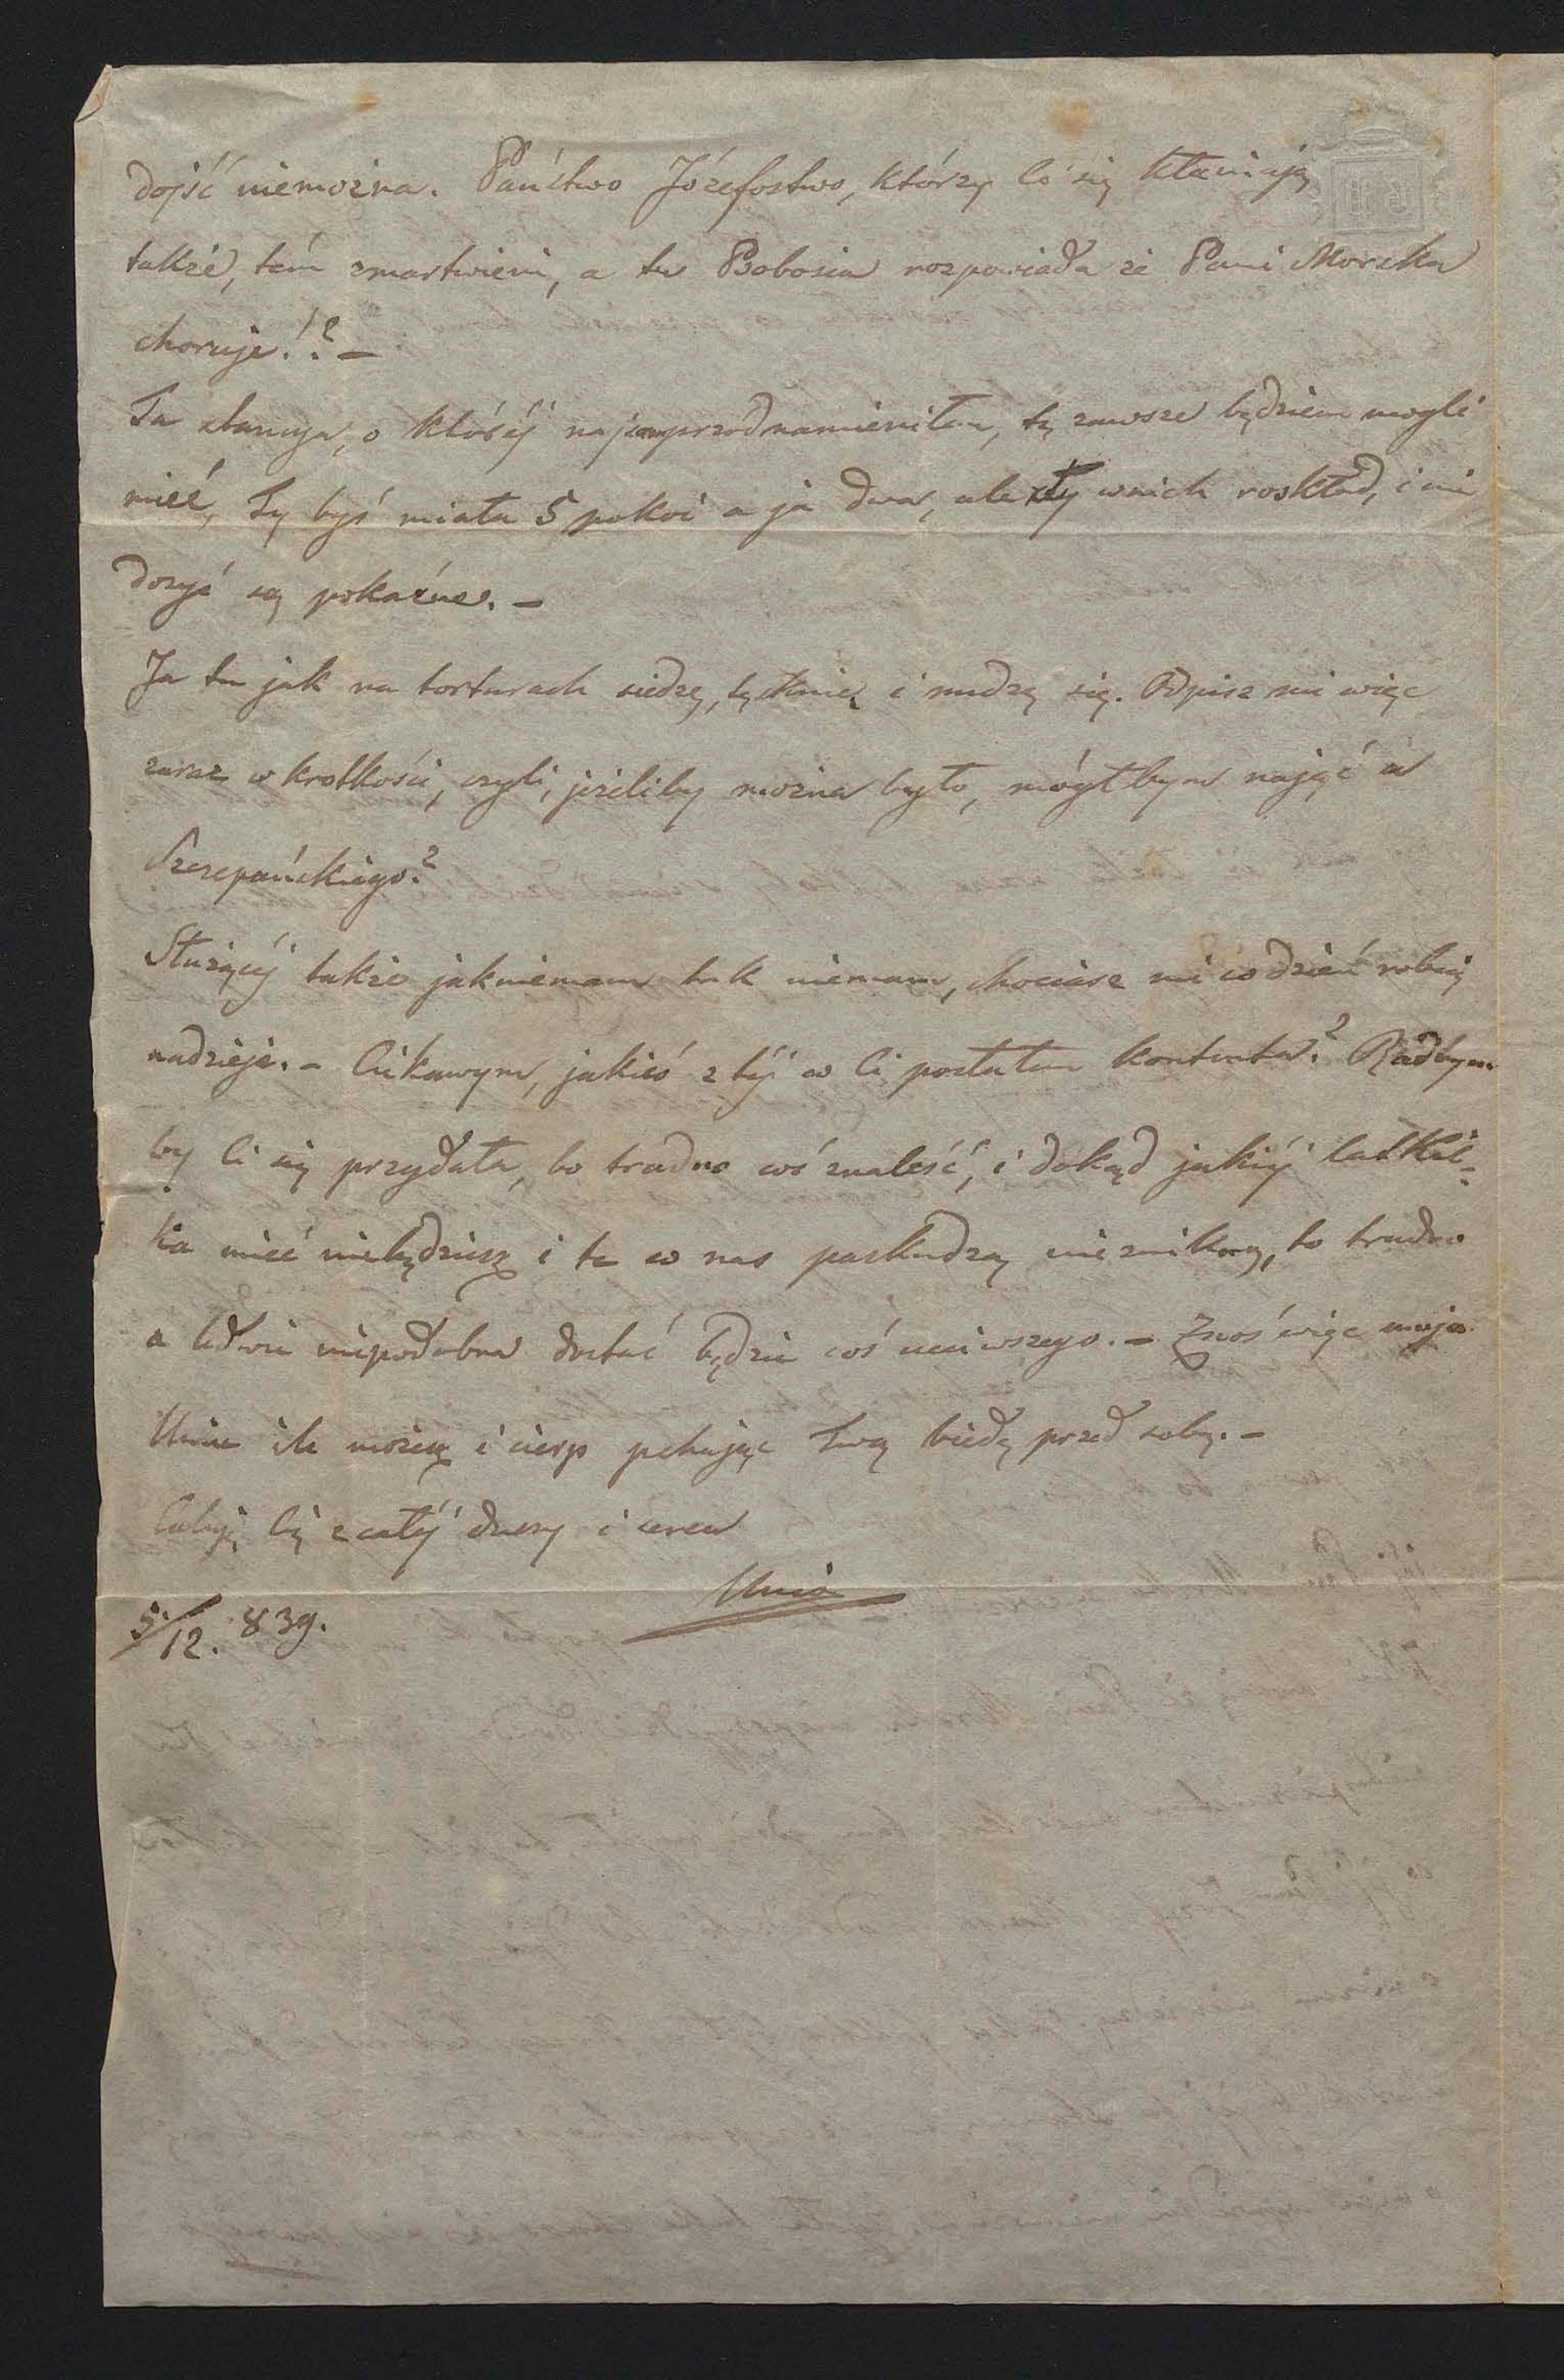 dojść niemożna. Państwo Józefostwo, którzy Ci się kłaniają
także, tém zmartwieni, a tu Bobosia rozpowiada że Pani Morska
choruje!? –
Ta stancya, o któréj najwprzód namieniłem, tę zawsze będziem mogli
mieć, Ty byś miała 5 pokoi a ja dwa, ale zły w nich roskład, i nie
dosyć są pokaźne. –
Ja tu jak na torturach siedzę, tęsknię i nudzę się. Odpisz mi więc
zaraz w krotkości, czyli, jeżeliby można było, mógłbym nająć u
Szczepańskiego?
Służącéj także jak niemam tak niemam, chociasz mi co dzień robią
nadzieje. – Ciekawym, jakieś z téj co Ci posłałem kontenta? Radbym
by Ci się przydała, bo trudno coś znaleść, i dokąd jakiéj
ka mieć niebędziesz i te co nas paskudzą nie znikną, to trudno
a ledwie niepodobna dostać będzie coś uczciwszego. – Znoś więc moja
Uniu ile możesz i cierp pchając Twą biedę przed sobą. –
Całuję Cię z całéj duszy i serca
Unio
5/12. 839.